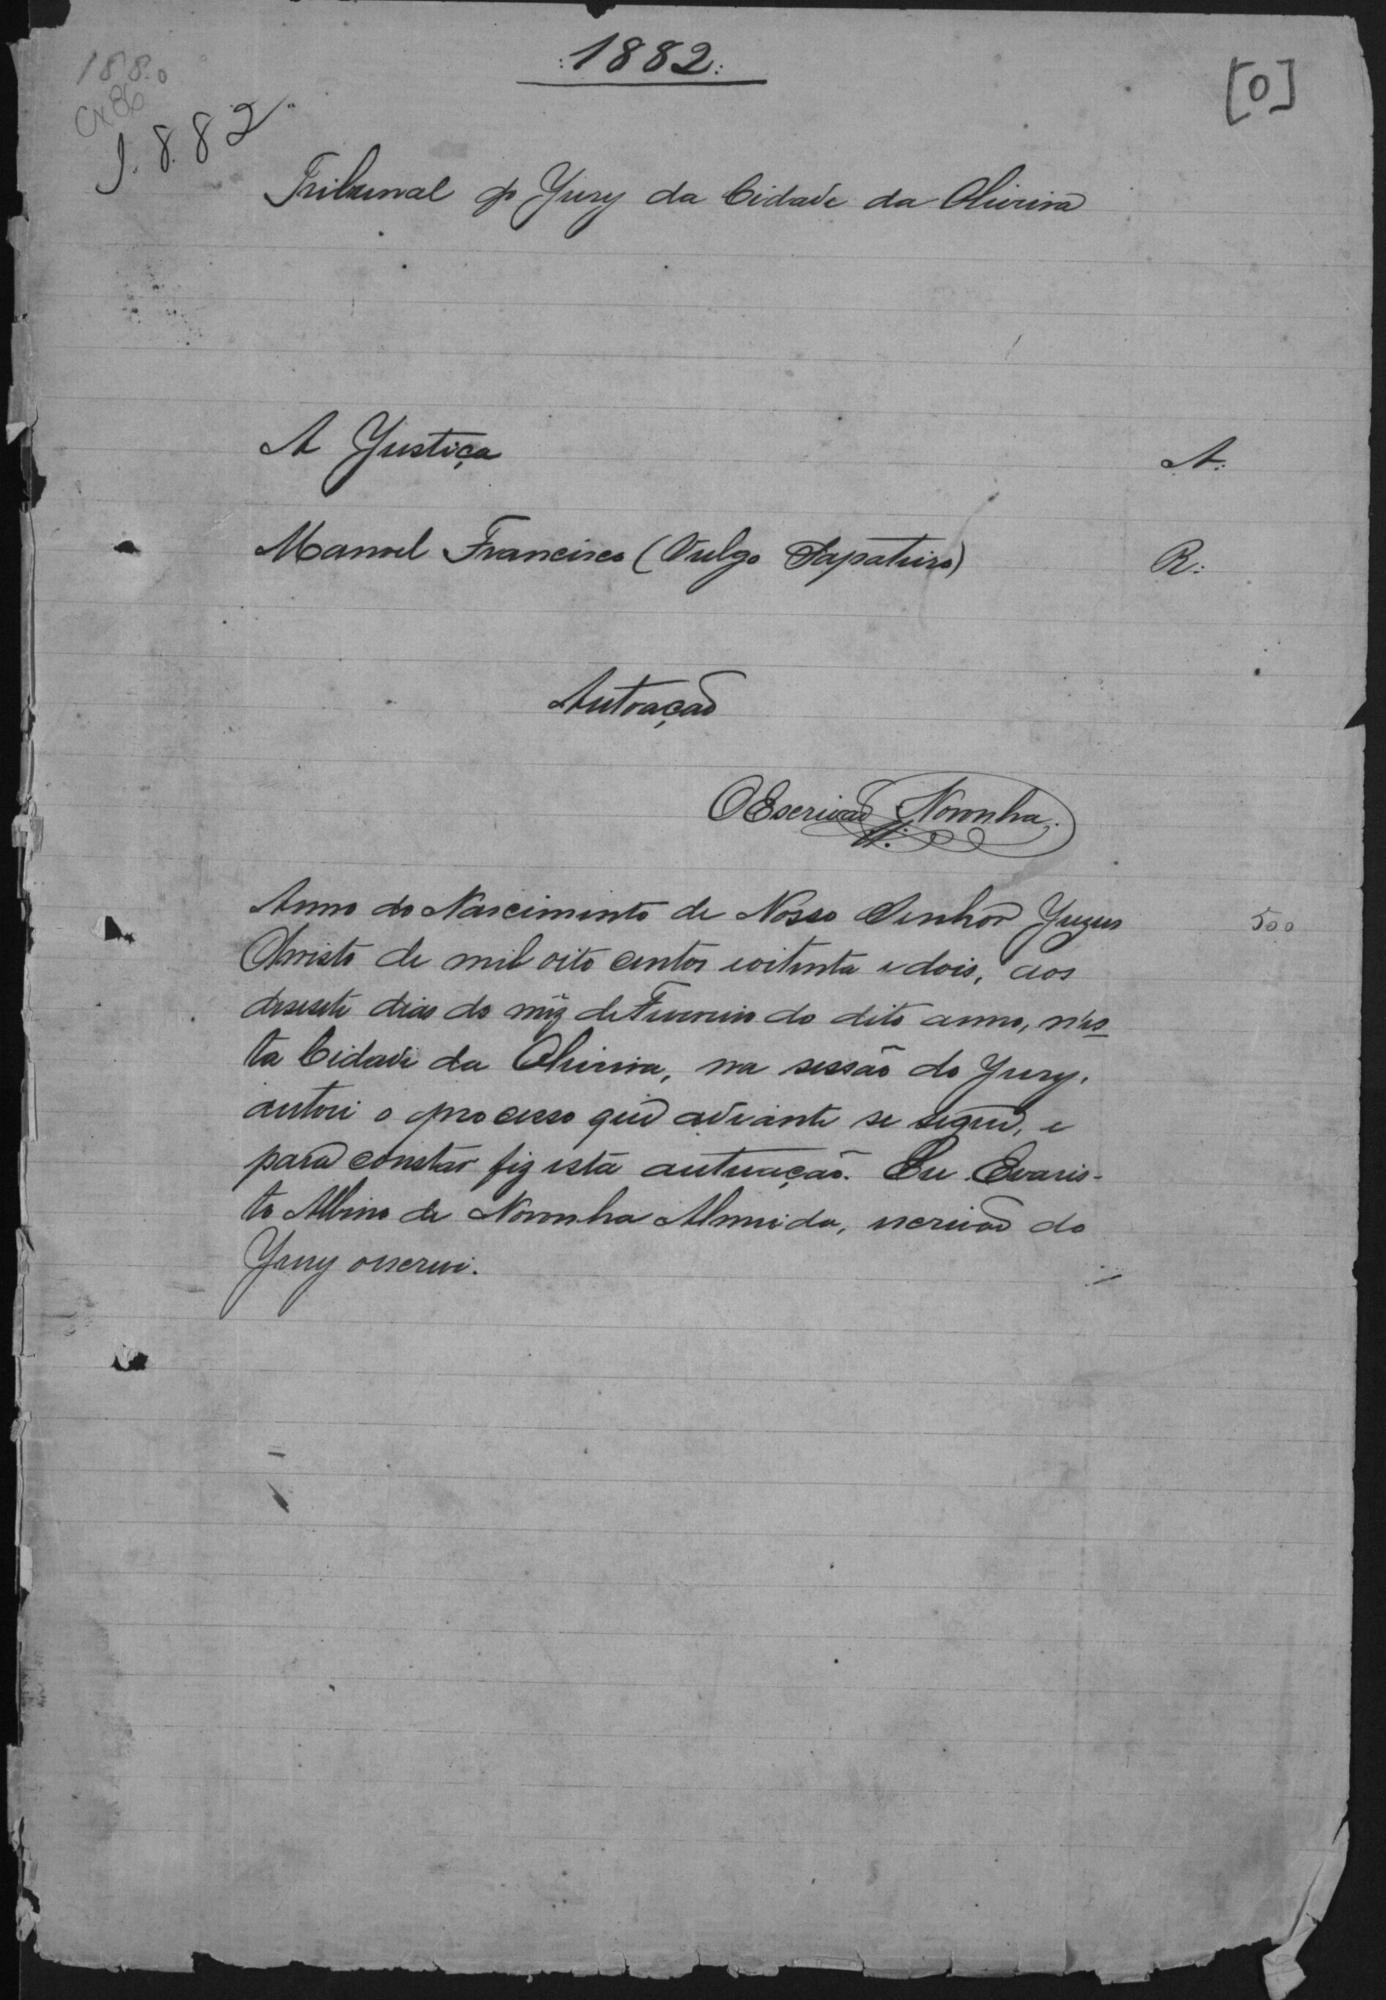 :1882:
188.0
Cx86
1.882
[0]
Tribunal do Jury da Cidade da Oliveira
A Justiça A.:
Manoel Francisco (Vulgo Sapateiro) R.:
Autoação
O Escrivão Noronha.
Anno do Nascimento de Nosso Senhor Jezus 500
Christo de mil oito centos e oitenta e dois, aos
desesete dias do mêz de Fevereiro do dito anno, n'es
ta Cidade da Oliveira, na sessão do Jury,
autoei o processo que adiante se segue, e
para constar fiz esta autuação. Eu Evaris-
to Albino de Noronha Almeida, escrivão do
Jury o escrevi.